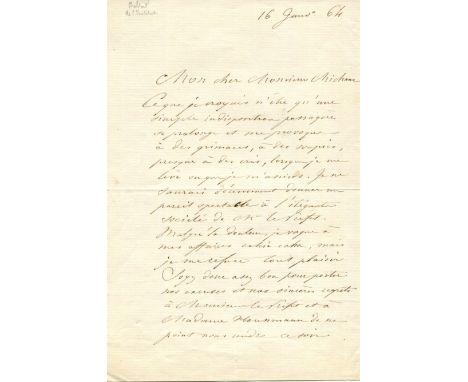 Baltard
de l'Institut
16 Janv. 64
Mon cher Monsieur Michaux
Ce que je croyais n'être qu'une
simple indisposition passagère
se prolonge et me provoque
à des grimaces, à des soupirs,
presque à des cris, lorsque je me
lève ou que je m'assieds. Je ne
saurais décemment donner un
pareil spectacle à l'élégante
société de Mr le Préfet.
Malgré la douleur je vaque à
mes affaires cahin caha, mais
je me refuse tout plaisir
Soyez donc assez bon pour porter
nos excuses et nos sincères regrets
à Monsieur le Préfet et à
Madame Haussmann de ne
point nous rendre ce soir